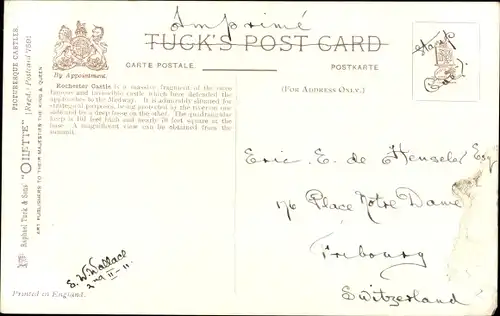 Imprimé
TUCK'S POST CARD
By Appointment.
CARTE POSTALE.
POSTKARTE
(FOR ADDRESS ONLY.)
stamp
Rochester Castle is a massive fragment of the once
famous and invincible castle which here defended the
approaches to the Medway. It is admirably situated for
strategical purposes, being protected by the river on one
side and by a deep fosse on the other. The quadrangular
keep is 104 feet high and nearly 70 feet square at the
base. A magnificent view can be obtained from the
summit.
Eric. E. de Henseler Esq
176 Place Notre Dame
Fribourg
Switzerland
S. W. Wallace
Printed in England.
PICTURESQUE CASTLES.
Raphael Tuck & Sons' "OILETTE" (Regd.) Postcard 7801
ART PUBLISHERS TO THEIR MAJESTIES THE KING & QUEEN.